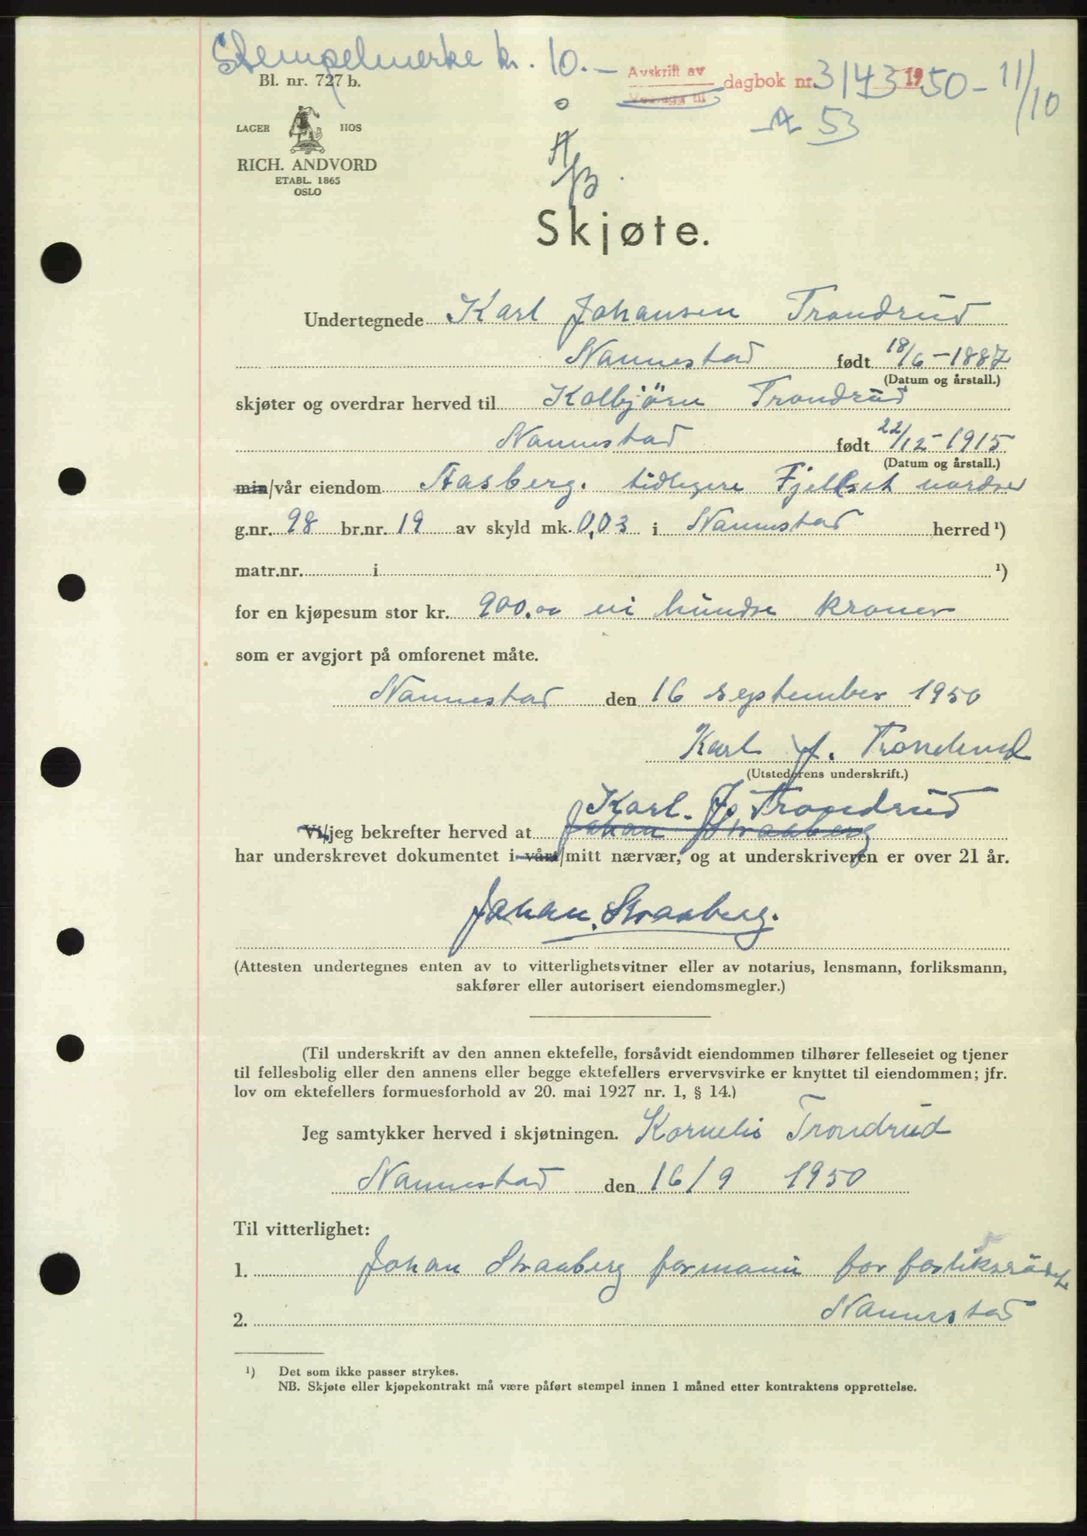 Stempelmerke kr. 10.—
Bl. nr. 727 b.
Avskrift av
dagbok nr. 3143 1950 – 11/10
A 53
LAGER HOS
RICH. ANDVORD
ETABL. 1865
OSLO
A/B.
Skjøte.
Undertegnede Karl Johansen Trondrud
Nannestad født 18/6–1887
(Datum og årstall.)
skjøter og overdrar herved til Kolbjörn Trondrud
Nannestad født 22/12–1915
(Datum og årstall.)
min/vår eiendom Aasberg. tidligere Fjellset nordre
g.nr. 98 br.nr. 19 av skyld mk. 0,03 i Nannestad herred ¹)
matr.nr. i ¹)
for en kjøpesum stor kr. 900.00 ni hundre kroner
som er avgjort på omforenet måte.
Nannestad den 16 september 1950
Karl J. Trondrud
(Utstederens underskrift.)
Karl. J. Trondrud
Vi/jeg bekrefter herved at Johan Straaberg
har underskrevet dokumentet i vårt/mitt nærvær, og at underskriveren er over 21 år.
Johan. Straaberg.
(Attesten undertegnes enten av to vitterlighetsvitner eller av notarius, lensmann, forliksmann,
sakfører eller autorisert eiendomsmegler.)
(Til underskrift av den annen ektefelle, forsåvidt eiendommen tilhører felleseiet og tjener
til fellesbolig eller den annens eller begge ektefellers ervervsvirke er knyttet til eiendommen; jfr.
lov om ektefellers formuesforhold av 20. mai 1927 nr. 1, § 14.)
Jeg samtykker herved i skjøtningen. Kornelia Trondrud
Nannestad den 16/9 1950
Til vitterlighet:
1. Johan Straaberg formann for forliksrådet
2. Nannestad
¹) Det som ikke passer strykes.
NB. Skjøte eller kjøpekontrakt må være påført stempel innen 1 måned etter kontraktens opprettelse.